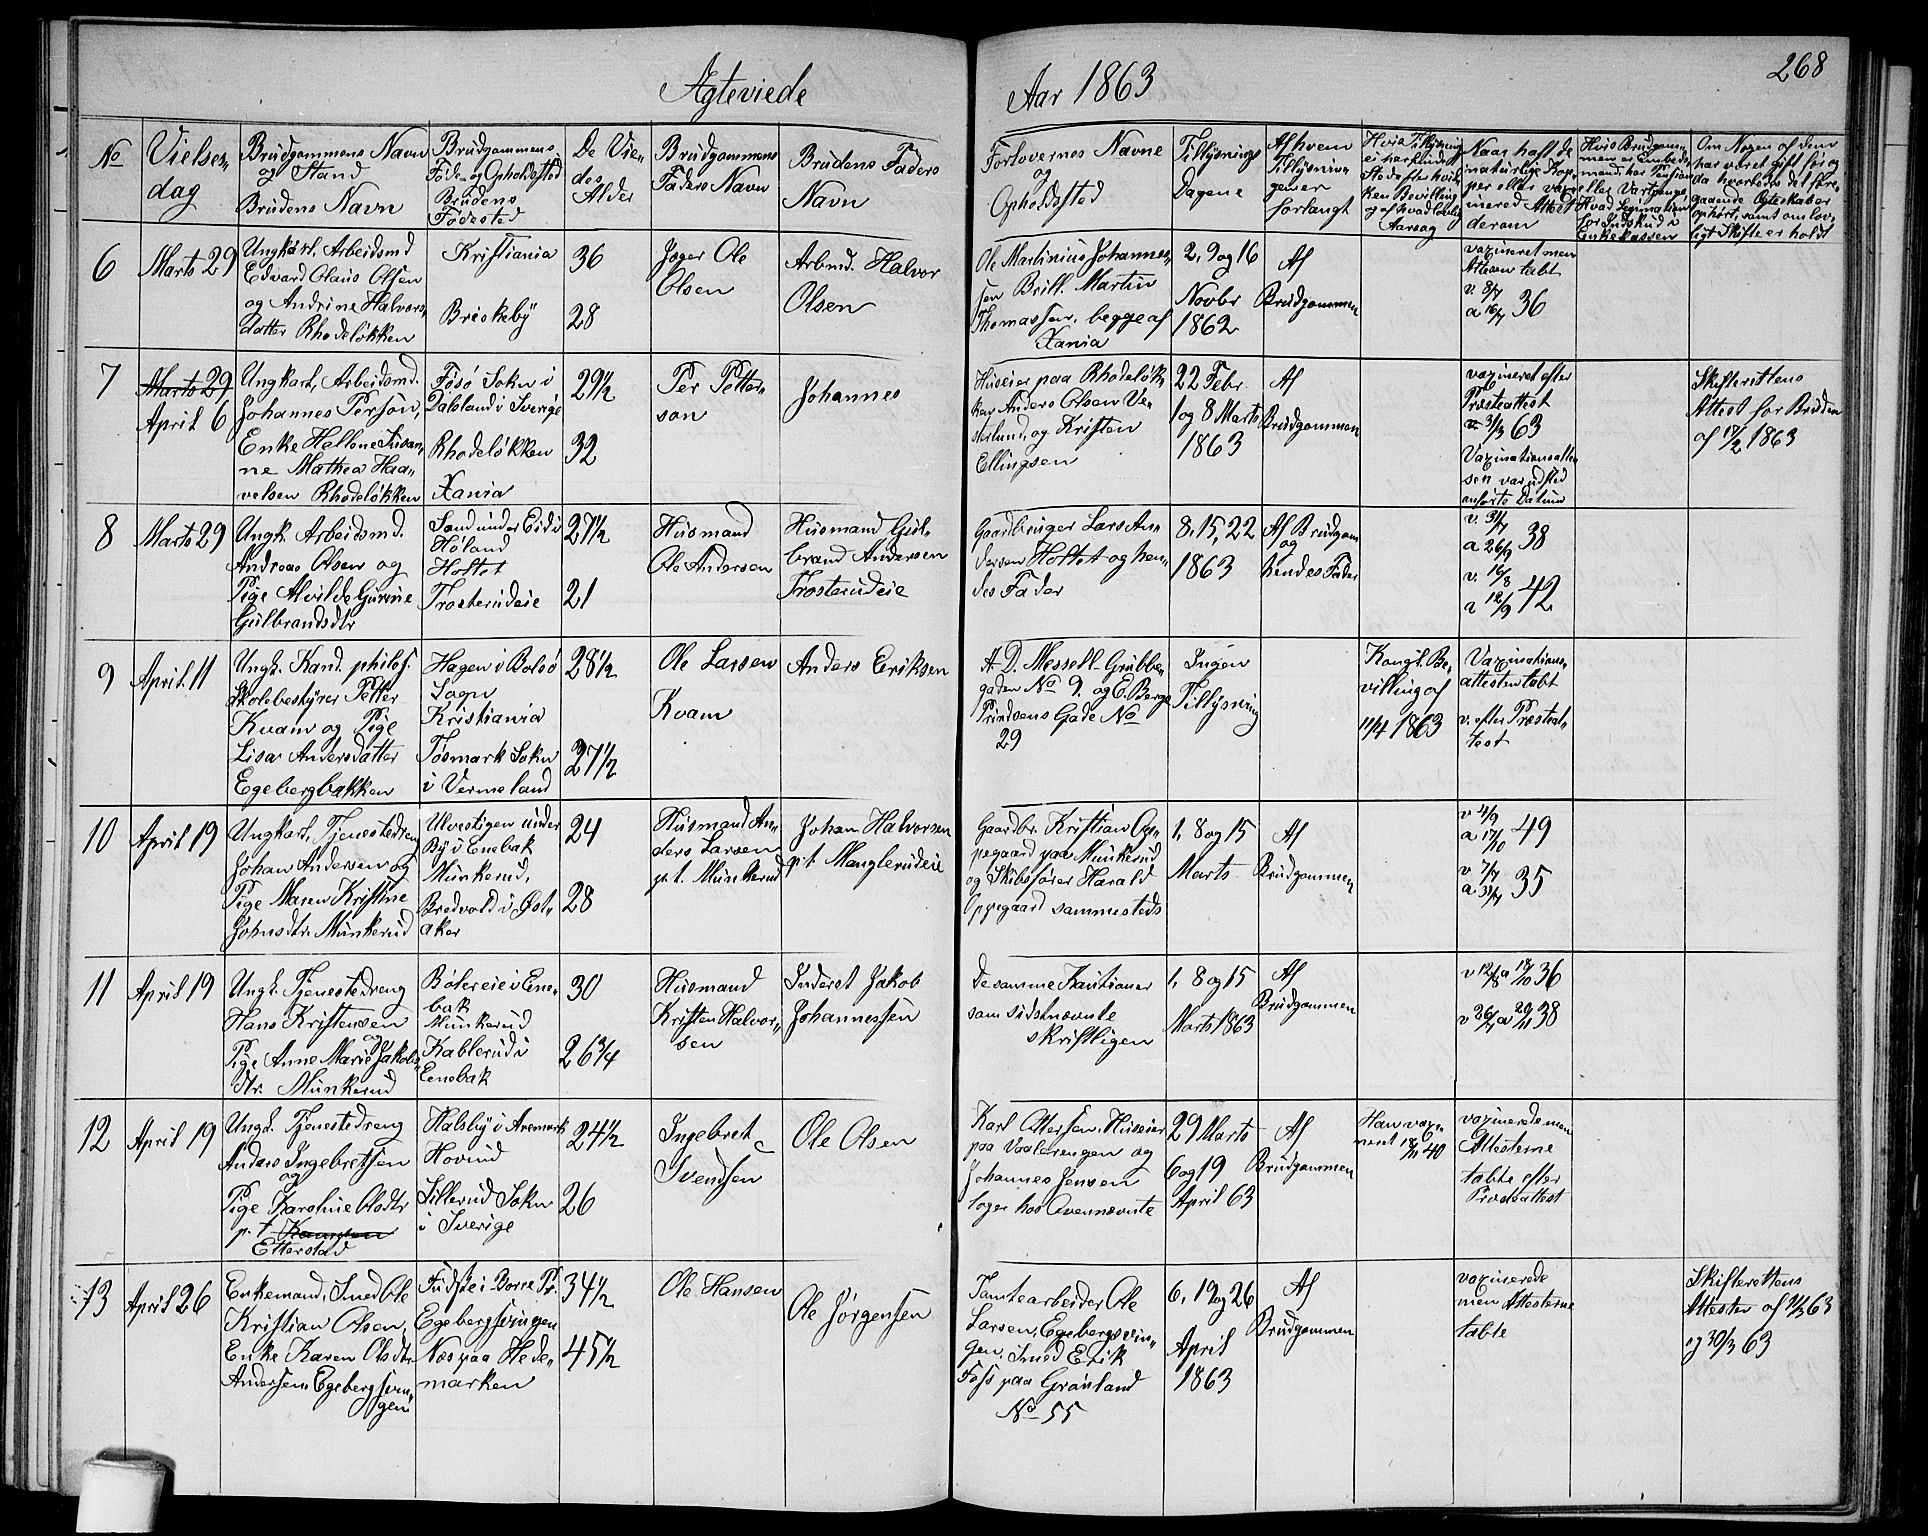 268
Agteviede
Aar 1863
No
Vielses-
dag
Brudgommens Navn
og Stand
Brudens Navn
Brudgommens
Føde- og Opholdssted
Brudens
Fødested
De Vie-
des
Alder
Brudgommens
Faders Navn
Brudens Faders
Navn
Forlovernes Navne
og
Opholdssted
Tillysnings
Dagene
Af hvem
Tillysnin-
gen er
forlangt
Hvis Tillysning
ei har fundet
Sted efter hvil-
ken Bevilling
og af hvad lovlig
Aarsag
Naar haft de
naturlige Kop-
per eller vaxi-
nered Attest
derom
Hvis Brudgom-
men er Embeds-
mand, har Pension
eller Vartpenge
Hvad Legitimation
for Indskud i
Enkekassen
Om Nogen af dem
har været gift før og
da hvorledes det fore-
gaaende Ægteskab er
ophørt, samt om lov-
ligt Skifte er holdt
6
Marts 29
Ungkarl, Arbeidsmd
Edvard Olaus Olsen
og Andrine Halvors-
datter Rhodeløkken
Kristiania
Briskeby
36
28
Jæger Ole
Olsen
Arbmd. Halvor
Olsen
Ole Martinius Johannes-
sen Brill. Martin
Thomassen, begge af
Xania
2, 9 og 16
Novbr
1862
Af
Brudgommen
vaxineret men
Attesten tabt
v. 8/7
a 16/7 36
7
Marts 29
April 6
Ungkarl, Arbeidsmd.
Johannes Person,
Enke Hellene Susan-
ne Mathea Haa-
velsen Rhodeløkken
Føsø Sokn i
Dalsland i Sverige
Rhodeløkken
Xania
29 1/2
32
Per Petter-
son
Johannes
Huseier paa Rhodeløk
ken Anders Olsen Ve-
sterlund, og Kristen
Ellingsen
22 Febr.
1 og 8 Marts
1863
Af
Brudgommen
vaxineret efter
Præsteattest
v. 31/3 63
Vaxinationsatte-
sen var udsted
anførte Datum
Skifterettens
Attest for Bruden
af 17/2 1863
8
Marts 29
Ungk. Arbeidsmd.
Andreas Olsen og
Pige Alvilde Gurine
Gulbrandsdtr
Sand under Eid i
Høland
Holtet
Trosterudeie
27 1/2
21
Husmand
Ole Andersen
Husmand Gul-
brand Andersen
Trosterudeie
Gaardbruger Lars An-
dersen Holtet og hen-
des Fader
8, 15, 22
1863
Af Brudgom
og
hendes Fader
v. 31/7
a 26/9 38
v. 16/8
a 12/9 42
9
April 11
Ungk. Kand. philos.
Skolebestyrer Petter
Kvam og Pige
Lisa Andersdatter
Egebergbakken
Hagen i Bolsø
Sogn
Kristiania
Tøsmark Sokn
i Vermeland
28 1/2
27 1/2
Ole Larsen
Kvam
Anders Eriksen
A. D. Messell. Grubbe-
gaden No 9. og E. Berge
Prindsens Gade No
29
Ingen
Tillysning
Kongl. Be-
villing af
11/4 1863
Vaxinations-
attesten tabt
v. efter Præsteat-
test
10
April 19
Ungkarl, Tjenestedreng
Johan Andersen og
Pige Maren Kristine
Johnsdtr. Munkerud
Ulvestigen under
By i Enebak
Munkerud,
Bredvold i Øst-
aker
24
28
Husmand An-
ders Larsen
p.t. Munkerud
Johan Halvorsen
p.t. Manglerudeie
Gaardbr. Kristian Op-
pegaard paa Munkerud
og Skibsfører Harald
Oppegaard sammesteds
1, 8 og 15
Marts
Af
Brudgommen
v 4/9
a 17/10 49
v 7/7
a 31/7 35
11
April 19
Ungk. Tjenestedreng
Hans Kristensen
og
Pige Anne Marie Jakobs-
dtr. Munkerud
Bølereie i Ene-
bak
Munkerud
Kablerud i
Eenebak
30
26 3/4
Husmand
Kristen Halvor-
sen
Inderst Jakob
Johannessen
De samme Kautioner
som sidstnævnte
skriftligen
1, 8 og 15
Marts 1863
Af
Brudgommen
v 12/8 a 18/10 36
v 26/7 a 29/11 38
12
April 19
Ungk. Tjenestedreng
Anders Ingebretsen
og
Pige Karoline Olsdtr
p.t.
Etterstad
Halsby i Aremark
Hovind
Sillerud Sokn
i Sverige
24 1/2
26
Ingebret
Svendsen
Ole Olsen
Karl Ottersen, Huseier
paa Vaalerengen og
Johannes Jensen
loger hos Ovennævnte
29 Marts
6 og 19
April 63
Af
Brudgommen
Han vaxi-
neret 40
vaxinerede men
Attesterne
tabte efter
Præsteattest
13
April 26
Enkemand, Smed Ole
Kristian Olsen,
Enke Karen Olsdtr
Andersen, Egebergsvin-
gen
i Borre Pr.
Egebergsvingen
Næs paa Hede-
marken
34 1/2
45 1/2
Ole Hansen
Ole Jørgensen
Tomtearbeider Ole
Larsen, Egebergsvin-
gen. Smed Erik
Foss paa Grønland
No 55
6, 19 og 26
April
1863
Af
Brudgommen
vaxinerede
men Attesterne
tabte
Skifterettens
Attester af 63
og 30/3 63